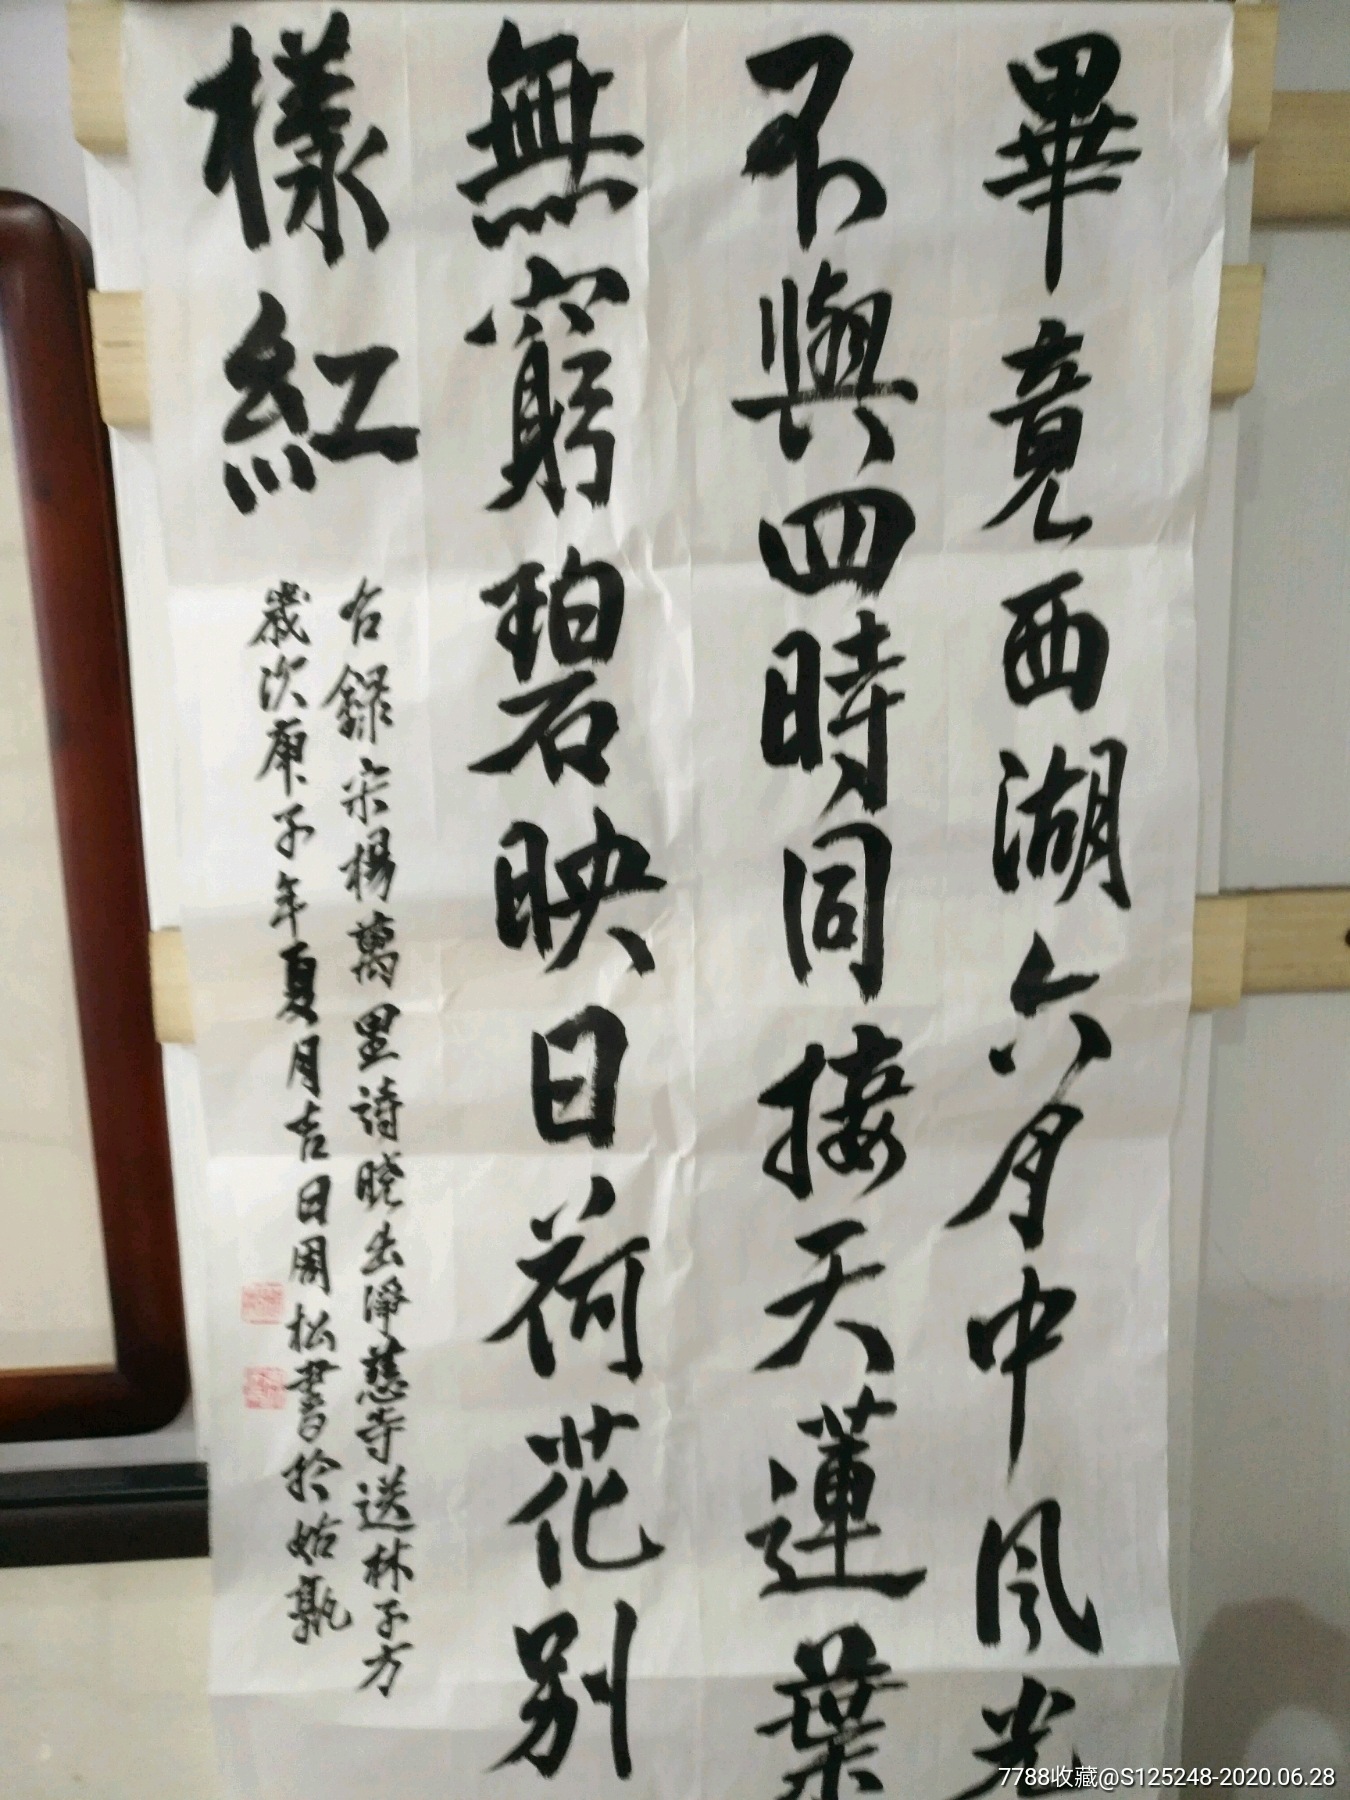 畢竟西湖六月中風光
不與四時同接天蓮葉
無窮碧映日荷花別
樣紅
右錄宋楊萬里詩曉出淨慈寺送林子方
歲次庚子年夏月吉日周松書於姑孰
7788收藏@S125248-2020.06.28